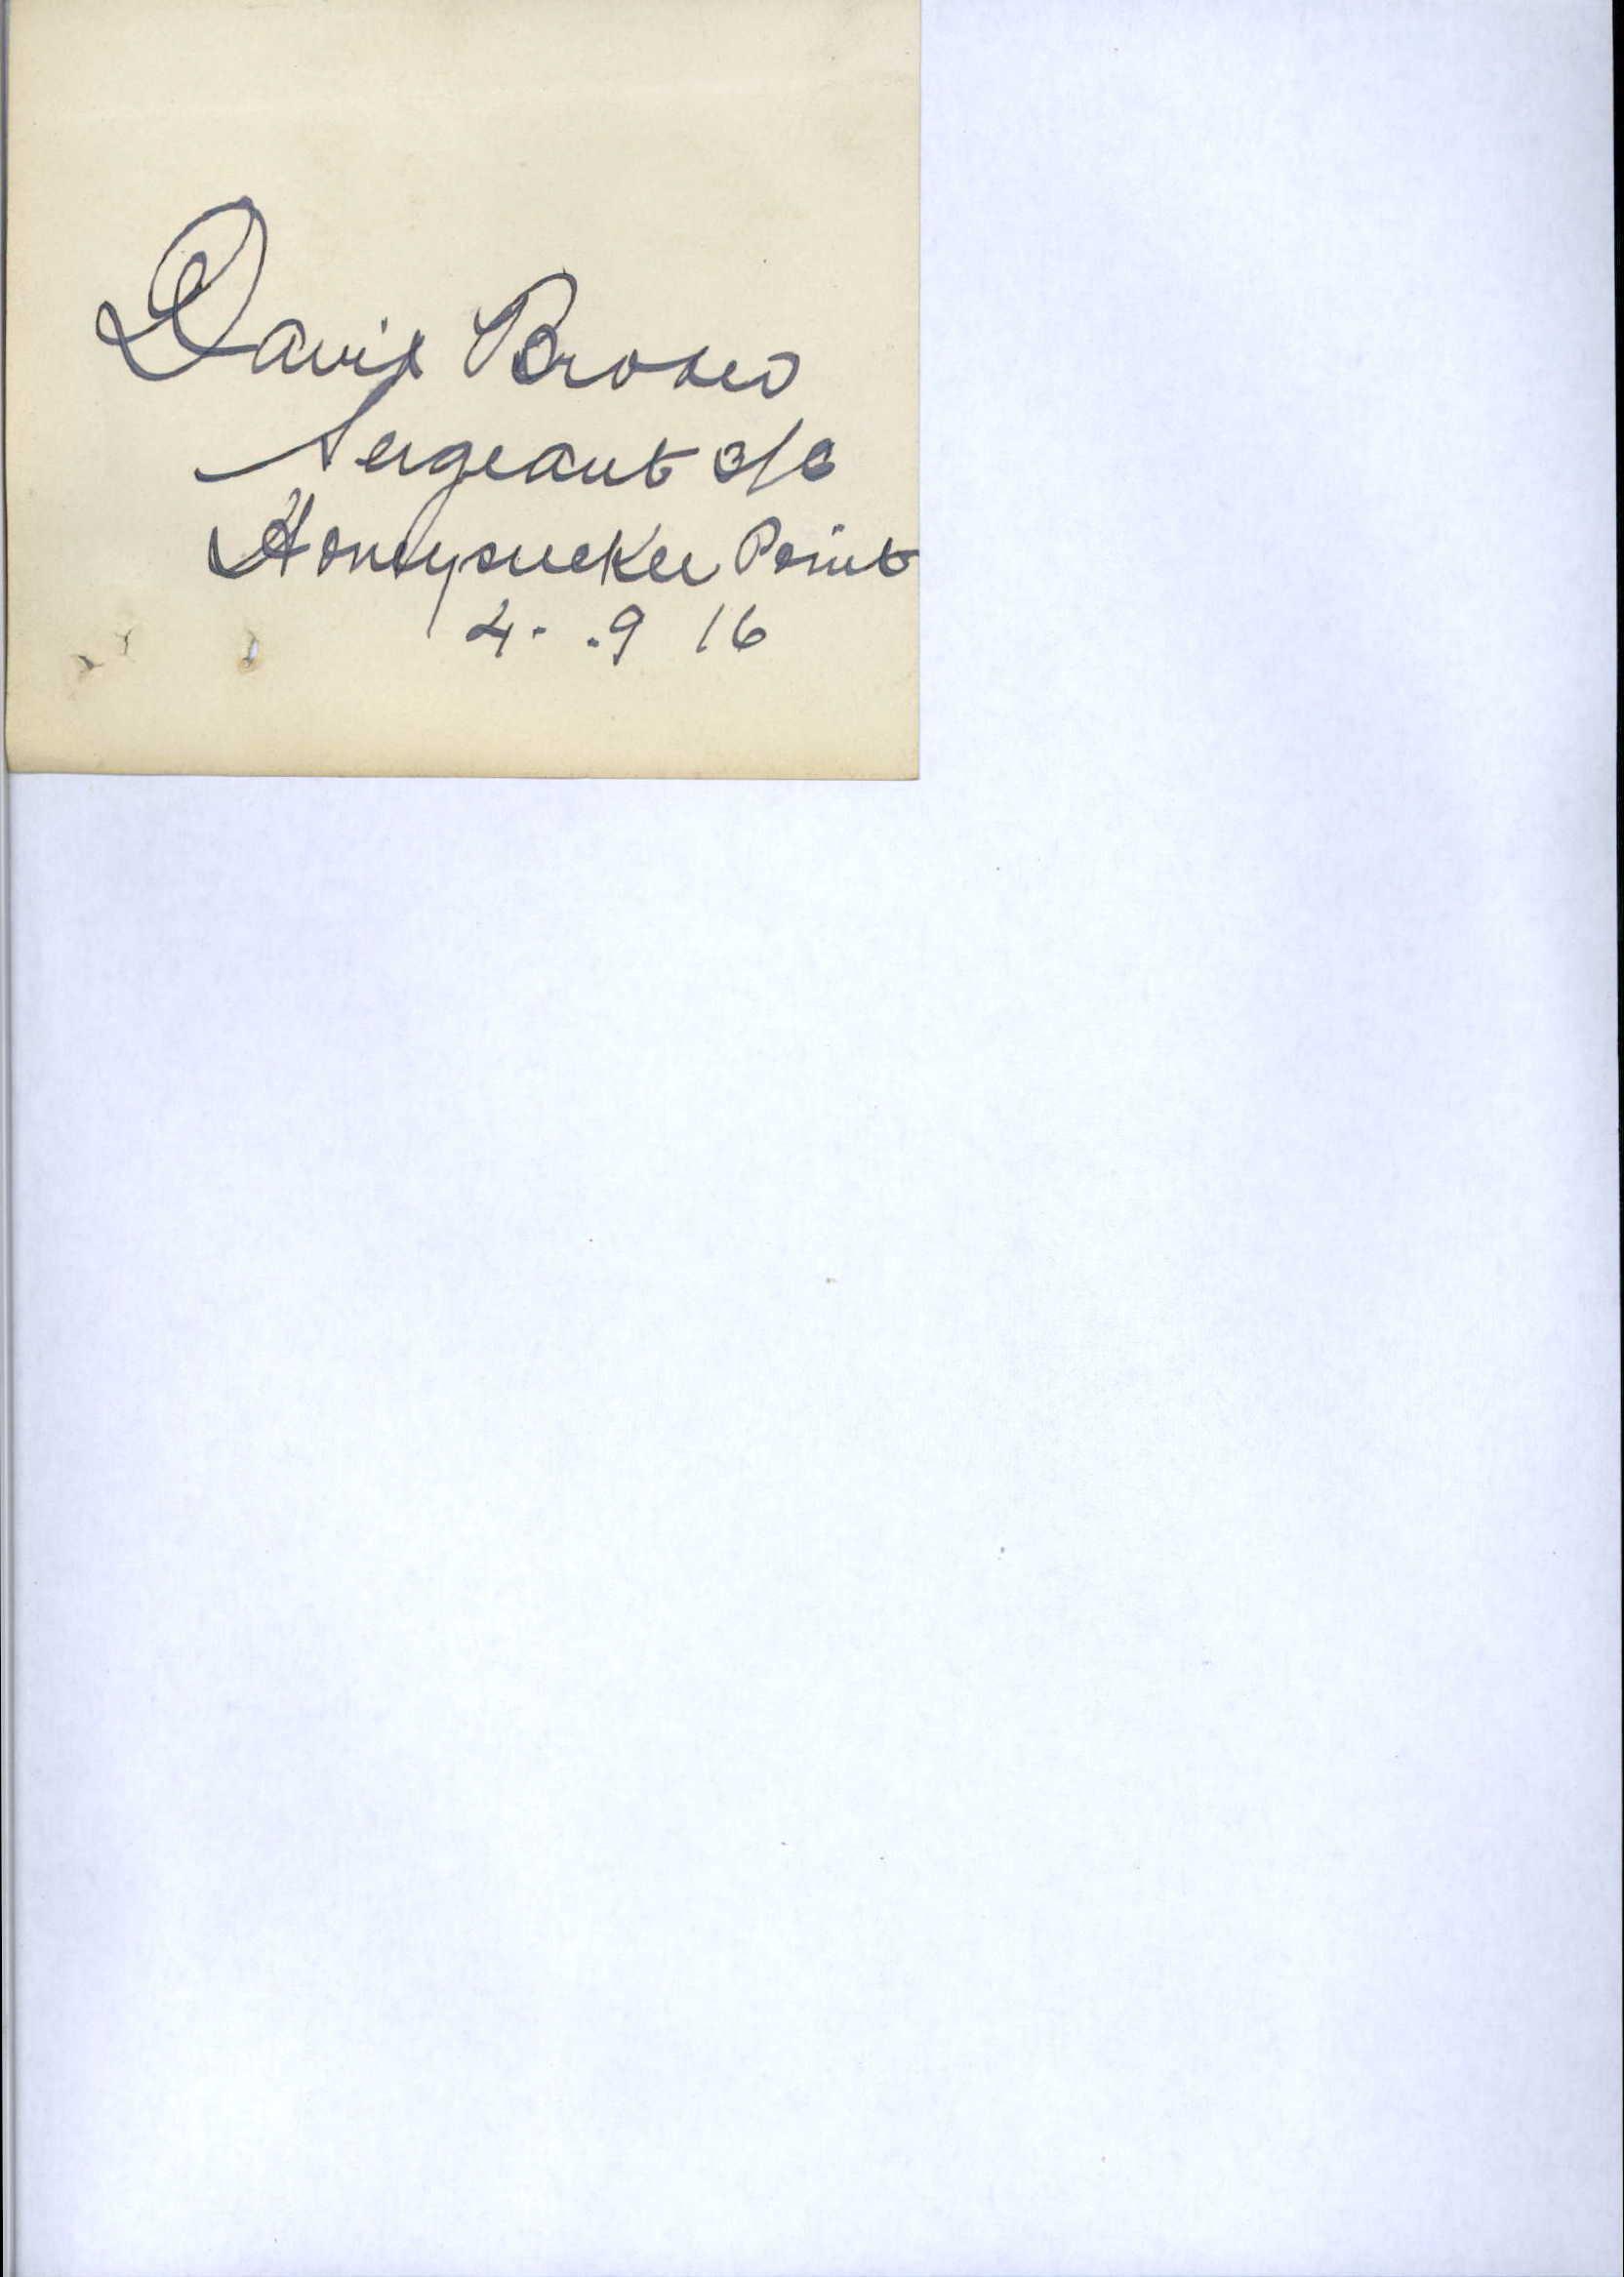 David Brown
Sergeant 3/c
Honeysuckle Point
4. .9 16